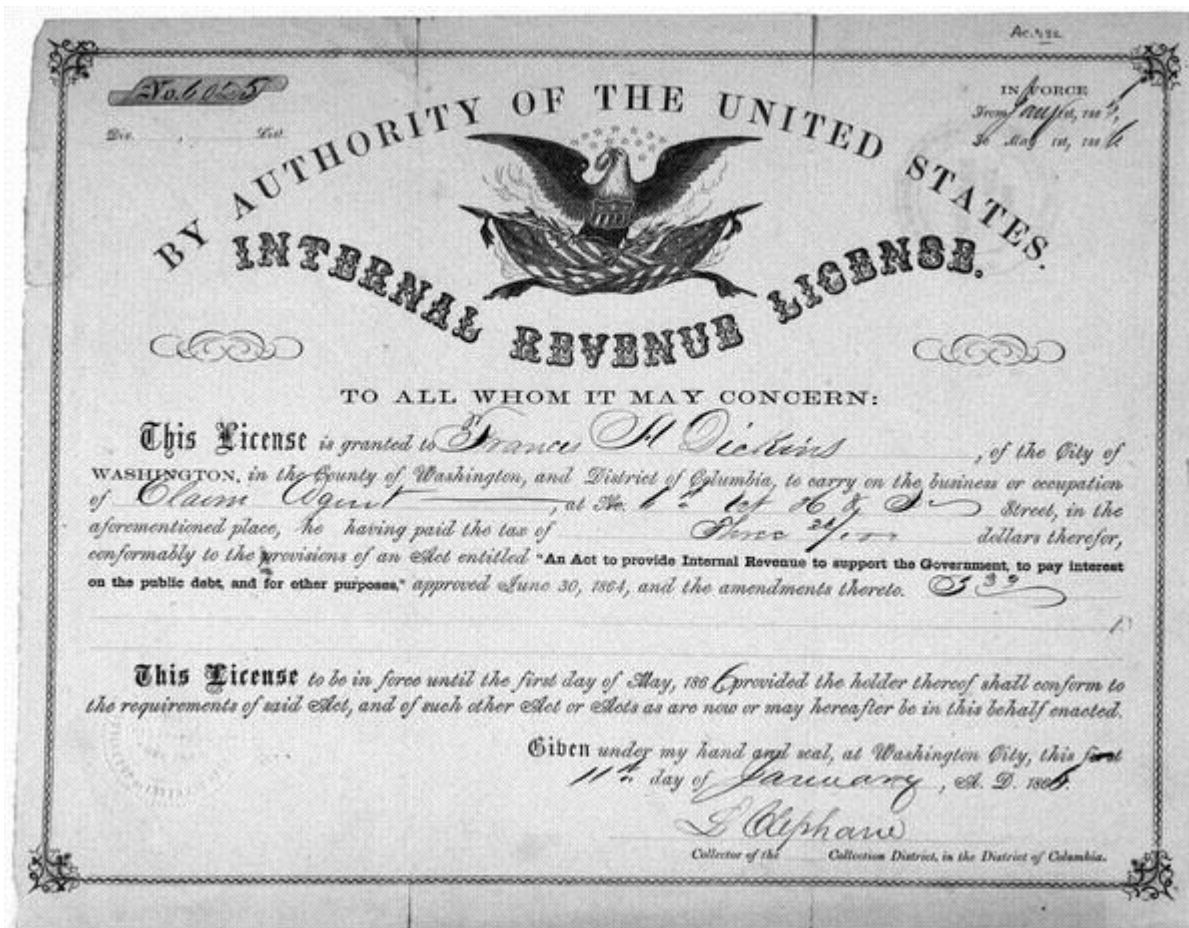 No. 6025
Div. , Dist.
IN FORCE
From Jany 1st, 186
To May 1st, 1866
BY AUTHORITY OF THE UNITED STATES.
INTERNAL REVENUE LICENSE.
TO ALL WHOM IT MAY CONCERN:
This License is granted to Frances H Dickins, of the City of
WASHINGTON, in the County of Washington, and District of Columbia, to carry on the business or occupation
of Claim Agent, at No. Street, in the
aforementioned place, he having paid the tax of Three dollars therefor,
conformably to the provisions of an Act entitled "An Act to provide Internal Revenue to support the Government, to pay interest
on the public debt, and for other purposes," approved June 30, 1864, and the amendments thereto.
This License to be in force until the first day of May, 1866 provided the holder thereof shall conform to
the requirements of said Act, and of such other Act or Acts as are now or may hereafter be in this behalf enacted.
Given under my hand and seal, at Washington City, this first
11th day of January, A. D. 1866.
L Clephane
Collector of the Collection District, in the District of Columbia.